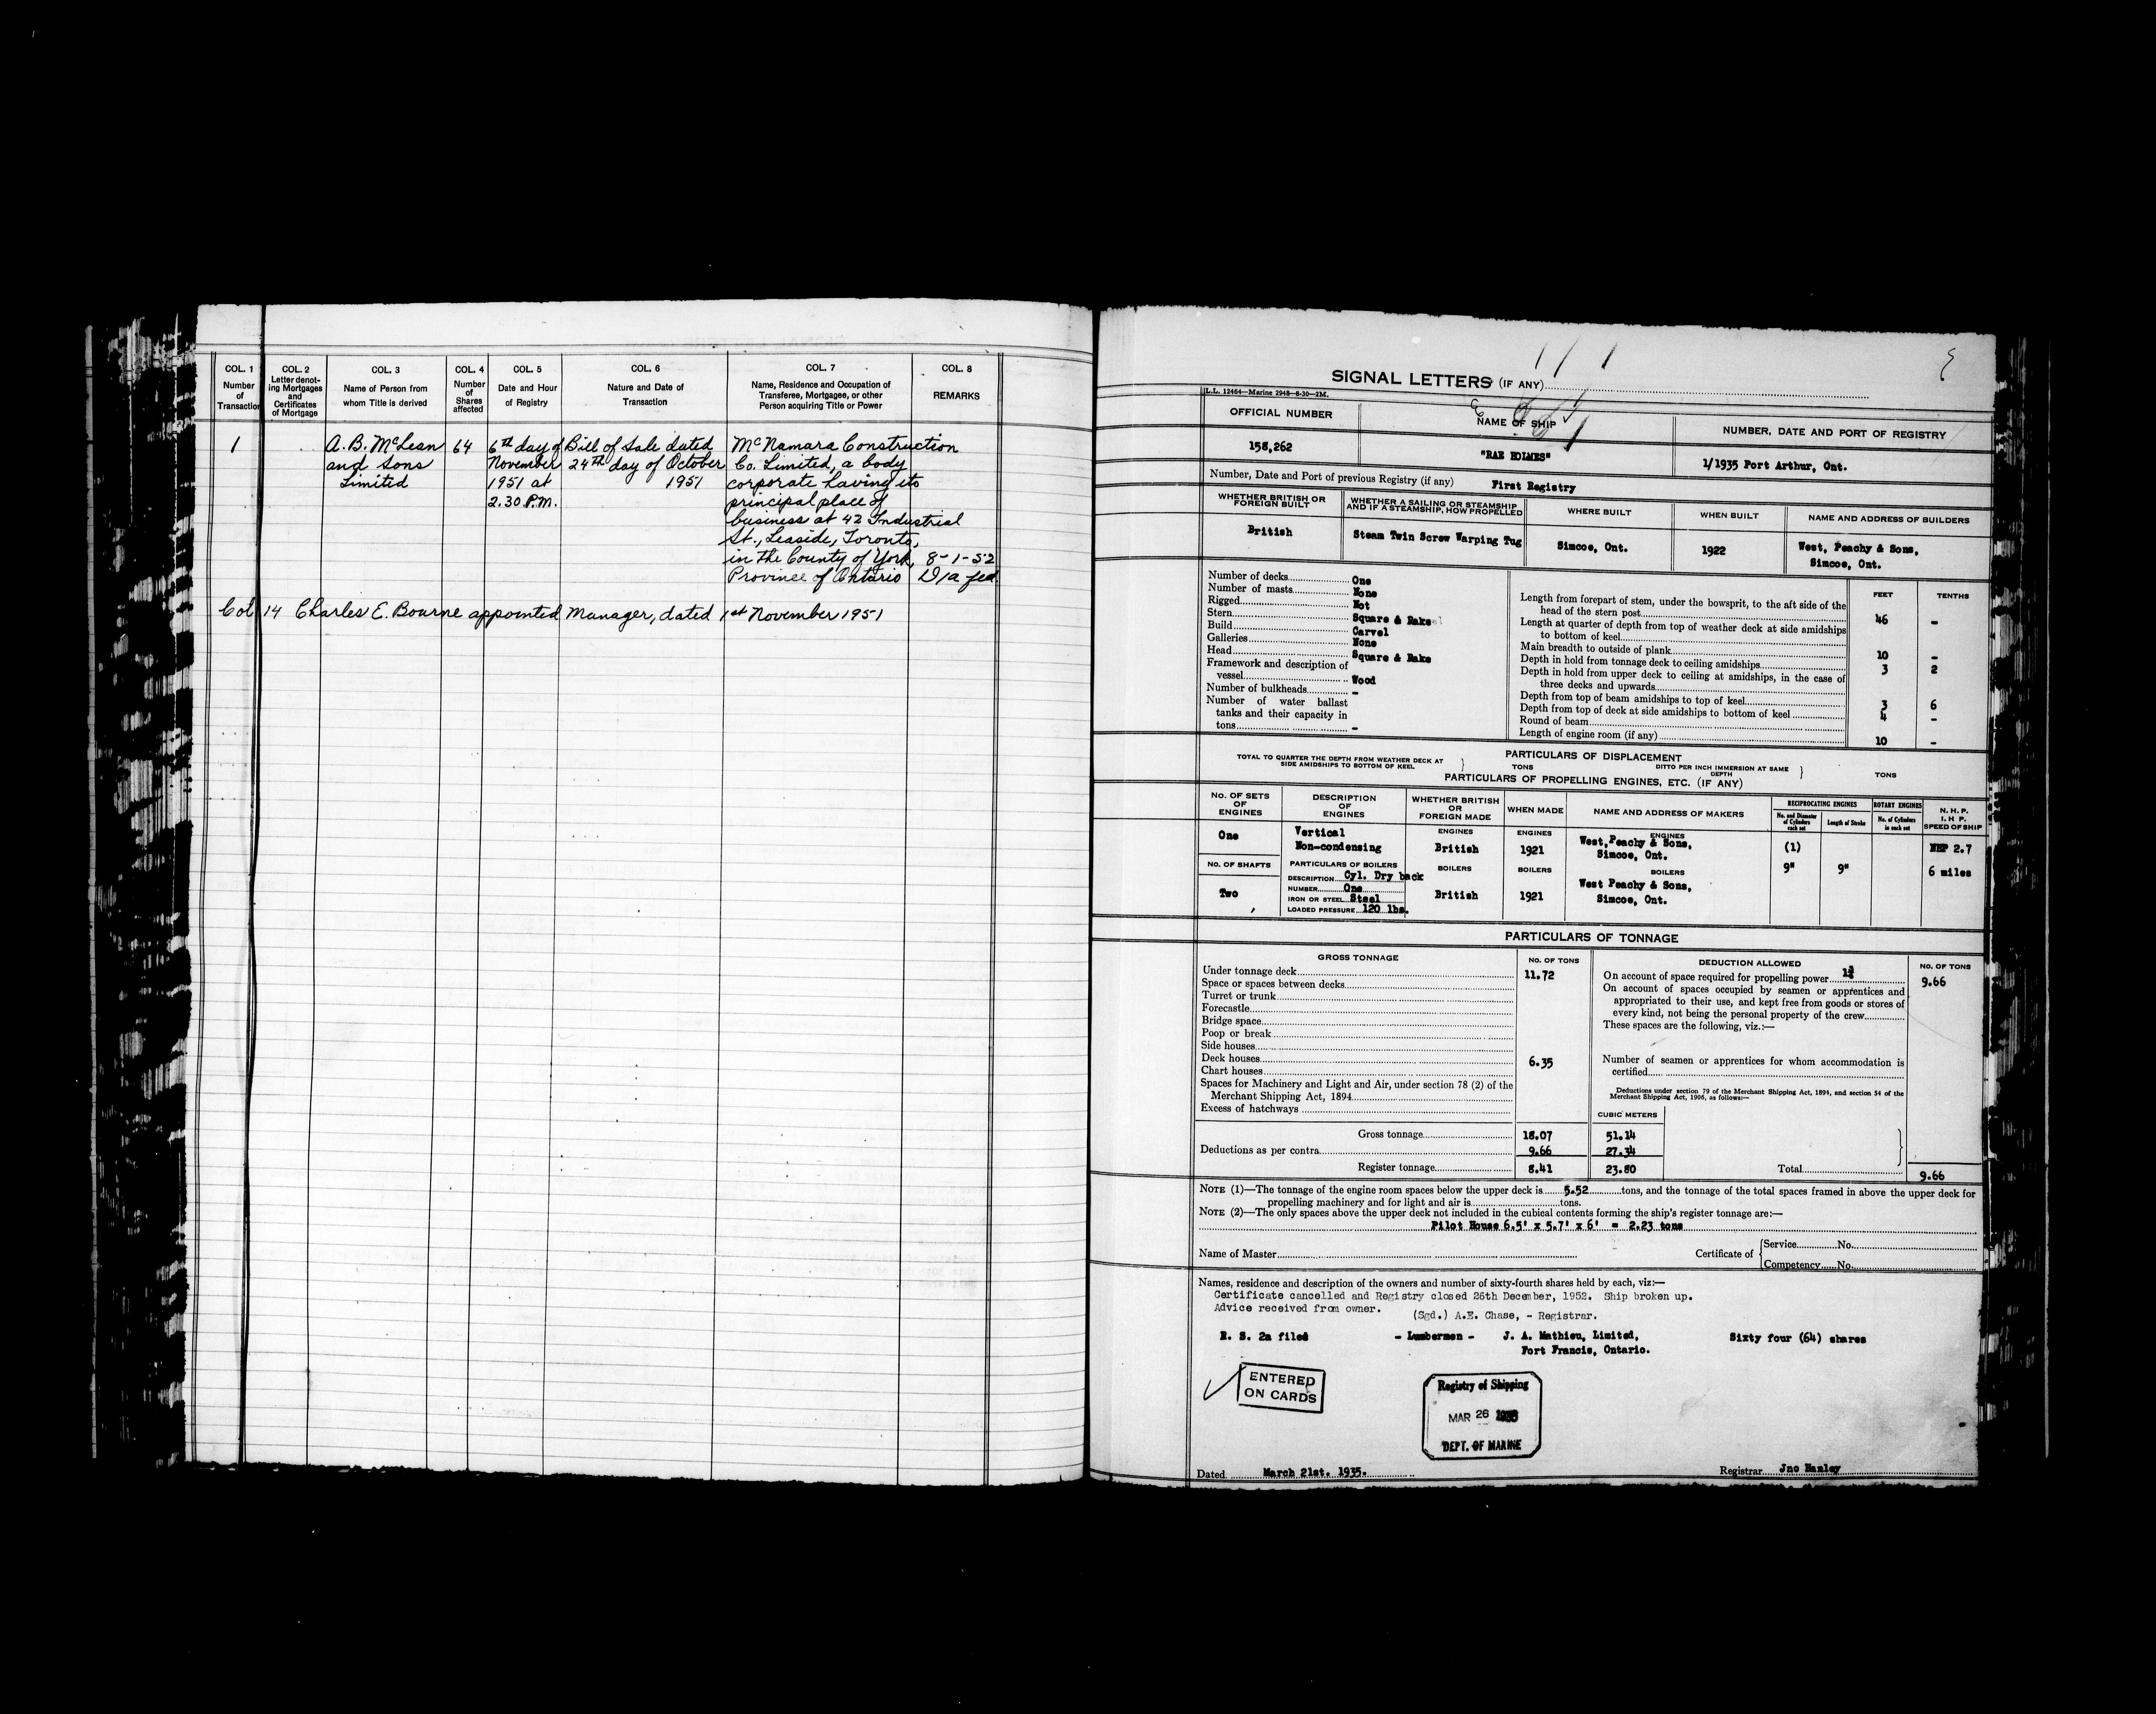 COL. 1
Number
of
Transaction
COL. 2
Letter denot-
ing Mortgages
and
Certificates
of Mortgage
COL. 3
Name of Person from
whom Title is derived
COL. 4
Number
of
Shares
affected
COL. 5
Date and Hour
of Registry
COL. 6
Nature and Date of
Transaction
COL. 7
Name, Residence and Occupation of
Transferee, Mortgagee, or other
Person acquiring Title or Power
COL. 8
REMARKS
1
A. B. McLean
and Sons
Limited
64
6th day of
November
1951 at
2.30 P.M.
Bill of Sale dated
24th day of October
1951
McNamara Construction
Co. Limited, a body
corporate having its
principal place of
business at 42 Industrial
St., Leaside, Toronto,
in the County of York,
Province of Ontario
8-1-52
Col 14 Charles E. Bourne appointed Manager, dated 1st November 1951
SIGNAL LETTERS (IF ANY)
L.L. 12464—Marine 2948—8-30—2M.
OFFICIAL NUMBER
NAME OF SHIP
NUMBER, DATE AND PORT OF REGISTRY
158,262
"RAE HOLMES"
1/1935 Port Arthur, Ont.
Number, Date and Port of previous Registry (if any) First Registry
WHETHER BRITISH OR
FOREIGN BUILT
WHETHER A SAILING OR STEAMSHIP
AND IF A STEAMSHIP, HOW PROPELLED
WHERE BUILT
WHEN BUILT
NAME AND ADDRESS OF BUILDERS
British
Steam Twin Screw Warping Tug
Simcoe, Ont.
1922
West, Peachy & Sons,
Simcoe, Ont.
Number of decks One
Number of masts None
Rigged Not
Stern Square & Rake
Build Carvel
Galleries None
Head Square & Rake
Framework and description of
vessel Wood
Number of bulkheads -
Number of water ballast
tanks and their capacity in
tons -
FEET TENTHS
Length from forepart of stem, under the bowsprit, to the aft side of the
head of the stern post 46 -
Length at quarter of depth from top of weather deck at side amidships
to bottom of keel
Main breadth to outside of plank 10 -
Depth in hold from tonnage deck to ceiling amidships 3 2
Depth in hold from upper deck to ceiling at amidships, in the case of
three decks and upwards
Depth from top of beam amidships to top of keel 3 6
Depth from top of deck at side amidships to bottom of keel 4 -
Round of beam
Length of engine room (if any) 10 -
PARTICULARS OF DISPLACEMENT
TOTAL TO QUARTER THE DEPTH FROM WEATHER DECK AT
SIDE AMIDSHIPS TO BOTTOM OF KEEL
TONS
DITTO PER INCH IMMERSION AT SAME
DEPTH
TONS
PARTICULARS OF PROPELLING ENGINES, ETC. (IF ANY)
No. OF SETS
OF
ENGINES
DESCRIPTION
OF
ENGINES
WHETHER BRITISH
OR
FOREIGN MADE
WHEN MADE
NAME AND ADDRESS OF MAKERS
RECIPROCATING ENGINES
No. and Diameter
of Cylinders
each set
Length of Stroke
ROTARY ENGINES
No. of Cylinders
in each set
N. H. P.
I. H P.
SPEED OF SHIP
One
Vertical
Non-condensing
ENGINES
British
ENGINES
1921
ENGINES
West, Peachy & Sons,
Simcoe, Ont.
(1)
9"
9"
NHP 2.7
6 miles
No. OF SHAFTS
Two
PARTICULARS OF BOILERS
DESCRIPTION Cyl. Dry back
NUMBER One
IRON OR STEEL Steel
LOADED PRESSURE 120 lbs.
BOILERS
British
BOILERS
1921
BOILERS
West Peachy & Sons,
Simcoe, Ont.
PARTICULARS OF TONNAGE
GROSS TONNAGE
No. OF TONS
Under tonnage deck 11.72
Space or spaces between decks
Turret or trunk
Forecastle
Bridge space
Poop or break
Side houses
Deck houses 6.35
Chart houses
Spaces for Machinery and Light and Air, under section 78 (2) of the
Merchant Shipping Act, 1894
Excess of hatchways
DEDUCTION ALLOWED
No. OF TONS
On account of space required for propelling power 9.66
On account of spaces occupied by seamen or apprentices and
appropriated to their use, and kept free from goods or stores of
every kind, not being the personal property of the crew
These spaces are the following, viz.:—
Number of seamen or apprentices for whom accommodation is
certified
Deductions under section 79 of the Merchant Shipping Act, 1894, and section 54 of the
Merchant Shipping Act, 1906, as follows:—
CUBIC METERS
Gross tonnage 18.07 51.14
Deductions as per contra 9.66 27.34
Register tonnage 8.41 23.80
Total 9.66
NOTE (1)—The tonnage of the engine room spaces below the upper deck is 5.52 tons, and the tonnage of the total spaces framed in above the upper deck for
propelling machinery and for light and air is tons.
NOTE (2)—The only spaces above the upper deck not included in the cubical contents forming the ship's register tonnage are:—
Pilot House 6.5' x 5.7' x 6' = 2.23 tons
Name of Master
Certificate of
Service No.
Competency No.
Names, residence and description of the owners and number of sixty-fourth shares held by each, viz:—
Certificate cancelled and Registry closed 26th December, 1952. Ship broken up.
Advice received from owner.
(Sgd.) A.E. Chase, - Registrar.
R. S. 2a filed - Lumbermen - J. A. Mathieu, Limited, Sixty four (64) shares
Fort Francis, Ontario.
ENTERED
ON CARDS
Registry of Shipping
MAR 26
DEPT. OF MARINE
Dated March 21st. 1935.
Registrar Jno Hanley